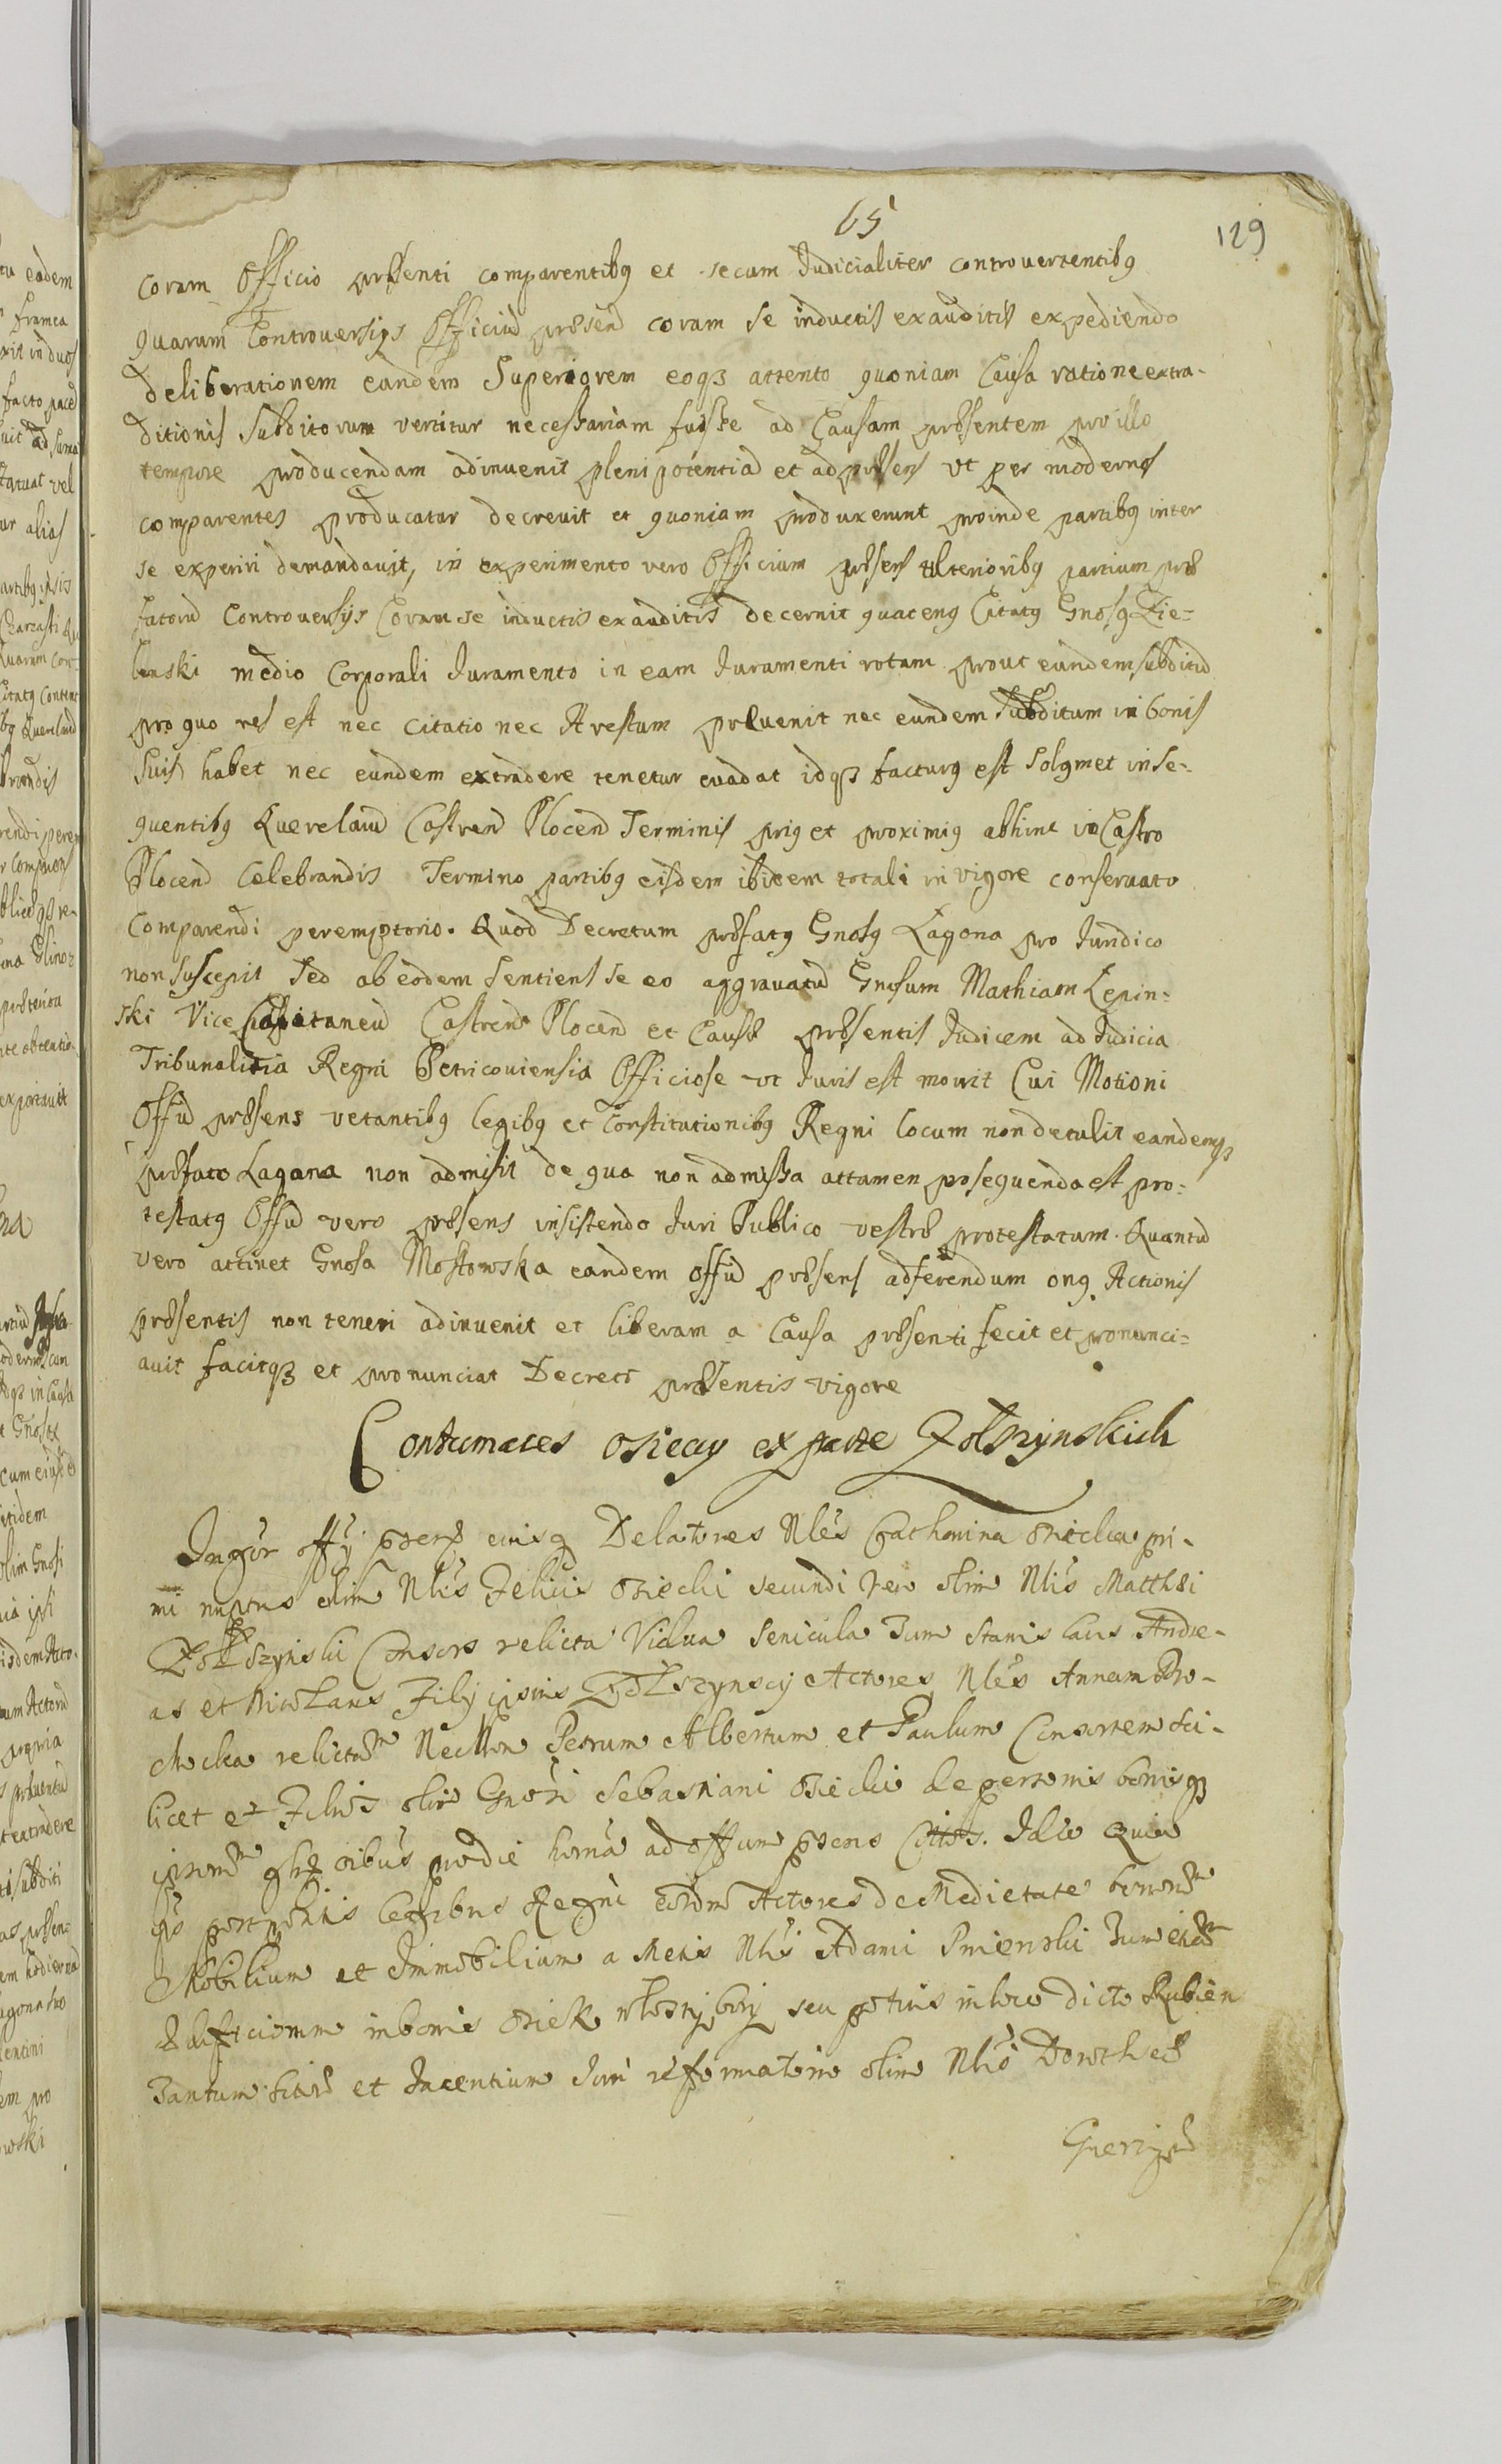 65
129
coram Officio præsenti comparentibq et secum Judicialiter controvertentibq
quarum Controversijs Officiu præsen coram se inductis exauditis expediendo
deliberationem eandem Superiorem eoqз attento quoniam Causa ratione extra-
ditionis Subditorum vertitur necessariam fuisse ad Causam præsentem pro illo
tempore producendam adinvenit plenipotentia et ad præsens ut per modernos
comparentes producatur decrevit et quoniam produxerunt proinde partibq inter
se experiri demandavit, in experimento vero Officium præsens ulterioribq partium præ
fatoru Controversijs Coram se inductis exauditis decernit quatenq Citatq Gnosq Zie-
lenski medio Corporali Juramento in eam Juramenti rotam prout eundem subditu
pro quo res est nec citatio nec Arestum prævenit nec eundem Subditum in bonis
Suis habet nec eundem extradere tenetur evadat idqз facturq est solqmet inse-
quentibq Querelaru Castren Plocen Terminis priq et proximiq abhinc in Castro
Plocen Celebrandis Termino partibq eisdem ibidem totali in vigore conservato
Comparendi peremptorio. Quod Decretum præfatq Gnosq Lagona pro Jundico
non suscepit sed ab eodem Sentiens se eo aggravatu Gnosum Mathiam Lepin-
ski Vice Capitaneu Castren Plocen et Causæ præsentis Judicem ad Judicia
Tribunalitia Regni Petricoviensia Officiose ut Juris est movit Cui Motioni
Offu præsens vetantibq legibq et Constitutionibq Regni locum non detulit eandemqз
præfato Lagona non admisit de qua non admissa attamen prosequenda est pro-
testatq Offu vero præsens insistendo Juri Publico vestræ protestatum. Quantu
vero attinet Gnosa Mostowska eandem offu præsens adferendum onq Actionis
præsentis non teneri adinvenit et liberam a Causa præsenti fecit et pronunci-
avit facitqз et pronunciat Decreti præsentis vigore
Contumaces osieccy ex parte Zołszynskich
offy Delatores Nles Cathomina osiecka pri-
mi nuptus olim Nlis Felicis osiecki secundi vero olim Nlis Matthæi
Zołszynski Consors relicta Vidua Senicula Tum Stanislaus Andre-
as et Nicolaus Filij ipsius Zołszynscy Actores Nles Annam Pro-
relictam Necnon Petrum Albertum et Paulum Consortem sci-
licet et Filios olim Gnosi Sebastiani osiecki de personis bonisqз
hodie ad offum præsens Cittos. Ideo Quia
legibus Regni Actores de Medietate bonorum
Mobilium et Immobilium a Metis Nlis Adami Tum
in bonis osiek seu potius in loco dicto Rubien
Tantum et Jacentium Juri reformatorio olim Nlis Dorotheæ